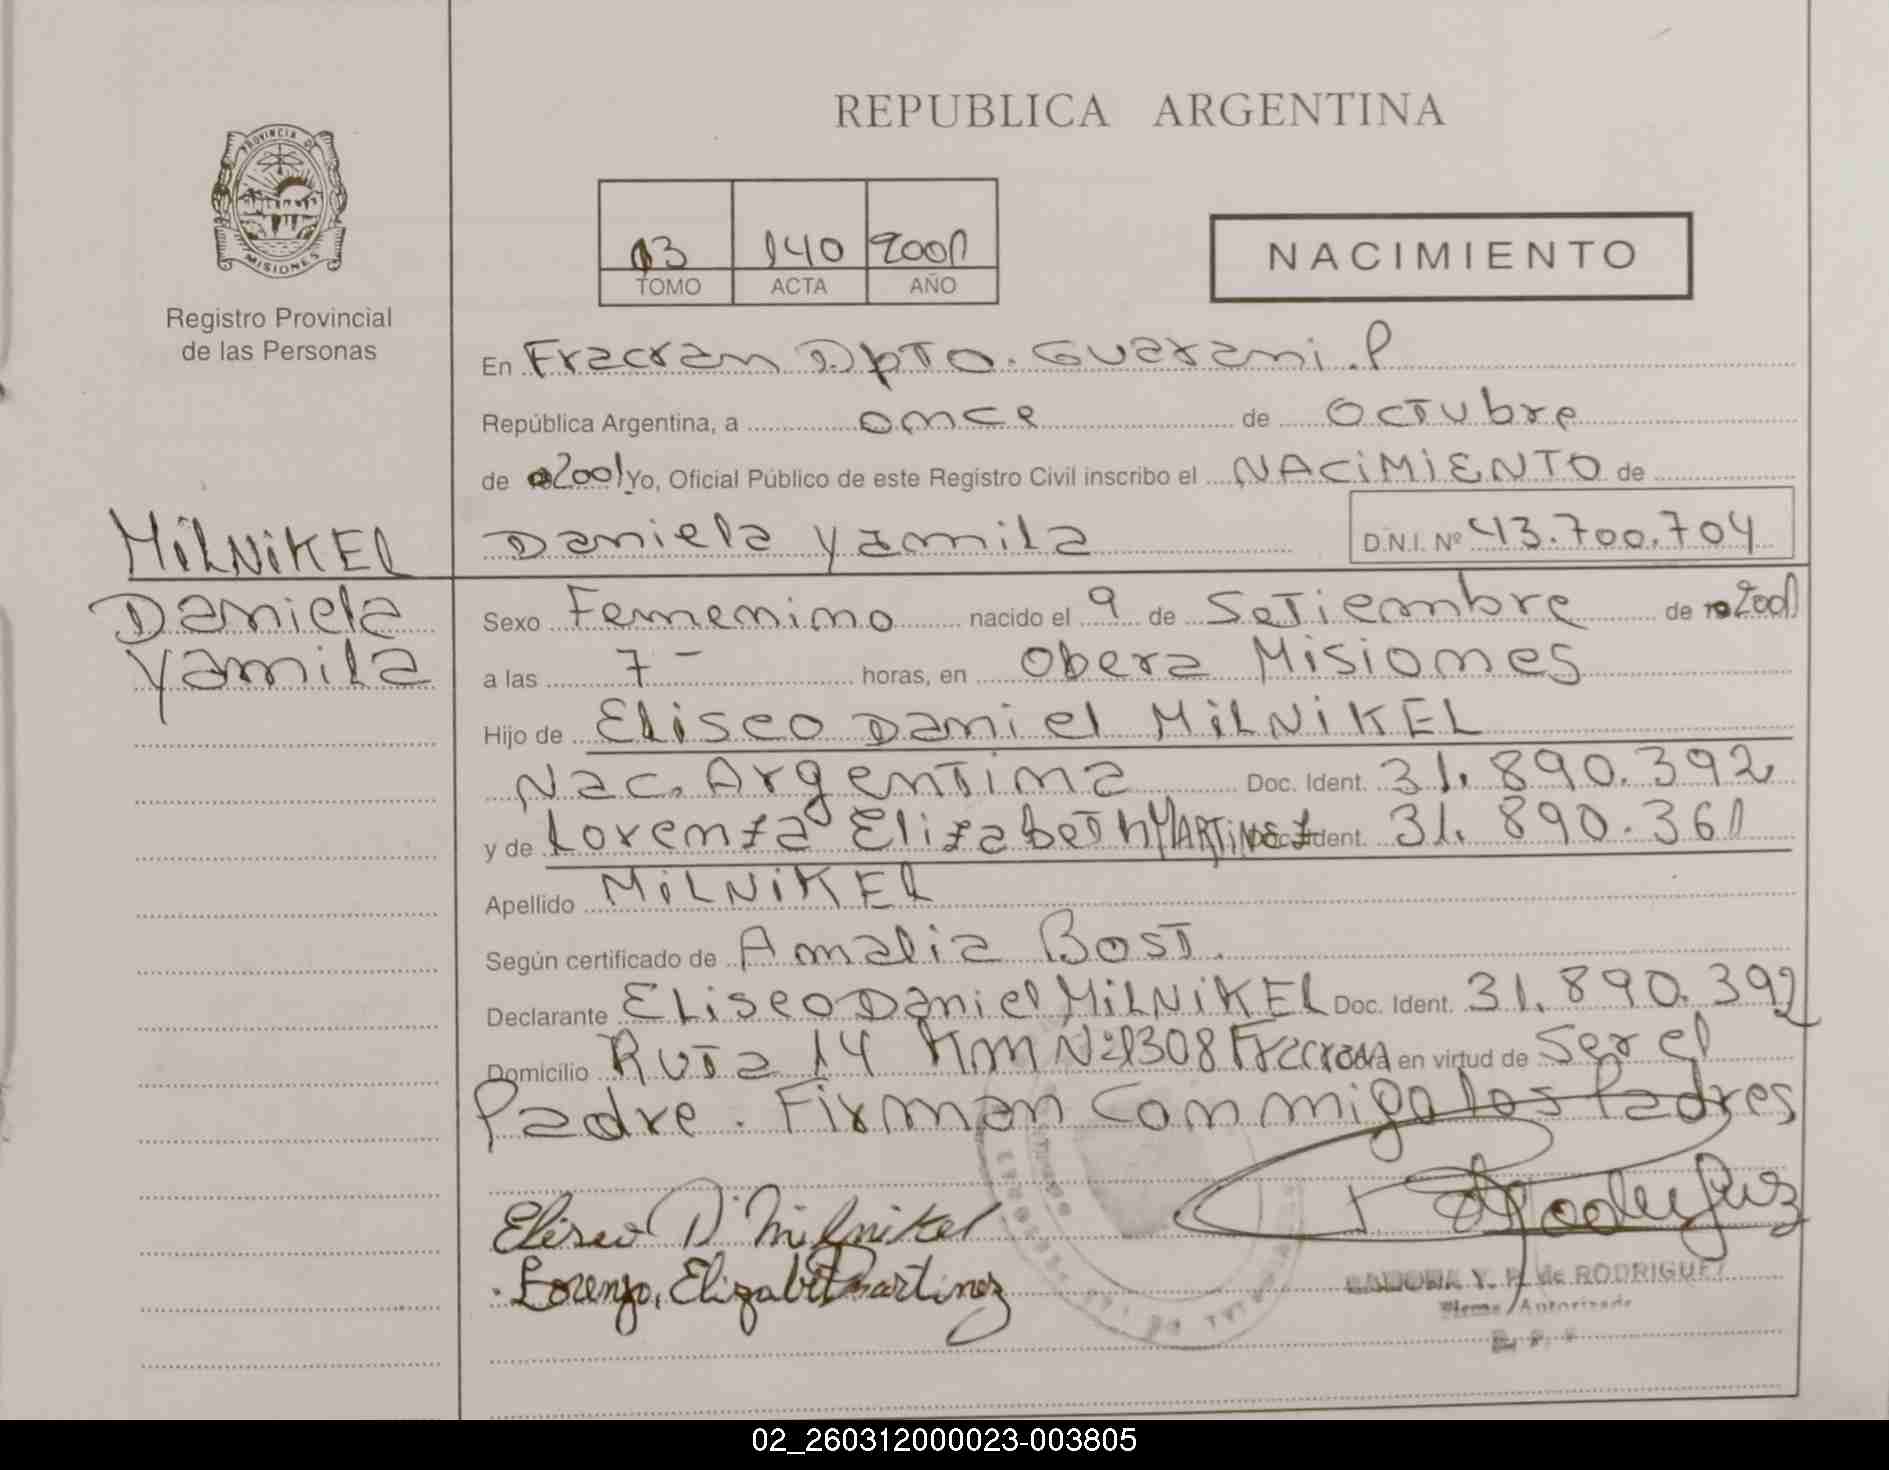 REPUBLICA ARGENTINA
PROVINCIA DE
MISIONES
Registro Provincial
de las Personas
13 140 2001
TOMO ACTA AÑO
NACIMIENTO
En Fracran Dpto. Guarani. P
República Argentina, a once de Octubre
de 2001 Yo, Oficial Público de este Registro Civil inscribo el NACIMIENTO de
MILNIKEL
Daniela Yamila D.N.I. Nº 43.700.704
Daniela
Yamila
Sexo Femenino nacido el 9 de Setiembre de 2001
a las 7 - horas, en Obera Misiones
Hijo de Eliseo Daniel MILNIKEL
Nac. Argentina Doc. Ident. 31.890.392
y de Lorenza Elizabeth MARTINEZ Doc. Ident. 31.890.361
Apellido MILNIKEL
Según certificado de Amalia Bost.
Declarante Eliseo Daniel MILNIKEL Doc. Ident. 31.890.392
Domicilio Ruta 14 Km Nº 1308 Fracran Obra en virtud de Ser el
Padre. Firman Conmigo los Padres
Eliseo D. Milnikel
Lorenza, Elizabet Martinez
Y. R. de RODRIGUEZ
Firma Autorizada
02_260312000023-003805